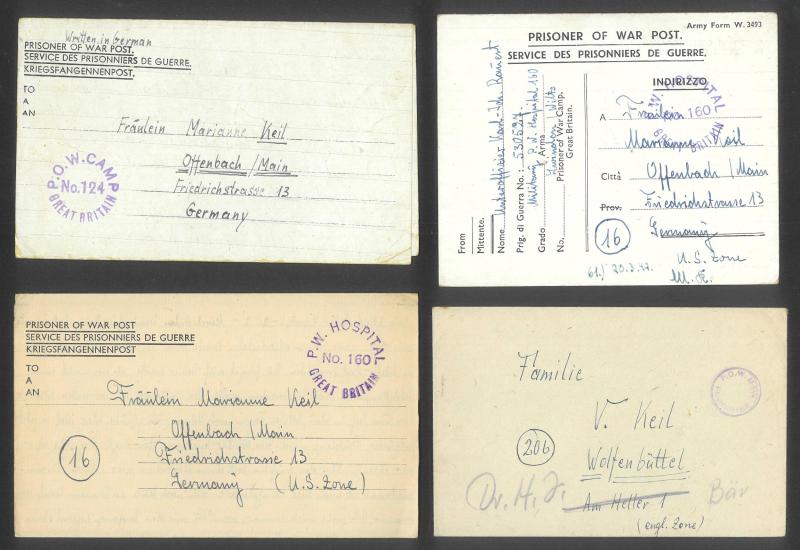 Written in German
PRISONER OF WAR POST.
SERVICE DES PRISONNIERS DE GUERRE.
KRIEGSFANGENNENPOST.
TO
A
AN
Fräulein Marianne Keil
Offenbach/Main
Friedrichstrasse 13
Germany
P.O.W. CAMP
No. 124
GREAT BRITAIN
Army Form W. 3493
PRISONER OF WAR POST.
SERVICE DES PRISONNIERS DE GUERRE.
INDIRIZZO
P.W. HOSPITAL
160
GREAT BRITAIN
A Fräulein
Marianne Keil
Città Offenbach/Main
Prov. Friedrichstrasse 13
16 Germany
U.S. Zone
61.) 20.3.47.
M. K.
From
Mittente.
Nome Unteroffizier Karl-Joh.
Prig. di Guerra No.: 530594
Grado Arma
Military P.W. Hospital 160
No. Prisoner of War Camp, Wilts
Great Britain.
PRISONER OF WAR POST
SERVICE DES PRISONNIERS DE GUERRE
KRIEGSFANGENNENPOST
TO
A
AN
P.W. HOSPITAL
No. 160
GREAT BRITAIN
Fräulein Marianne Keil
Offenbach/Main
16 Friedrichstrasse 13
Germany (U.S. Zone)
Familie
V. Keil
20b Wolfenbüttel
Dr. H. J. Bär
Am Heller 1
(engl. Zone)
P.O.W. MAIN